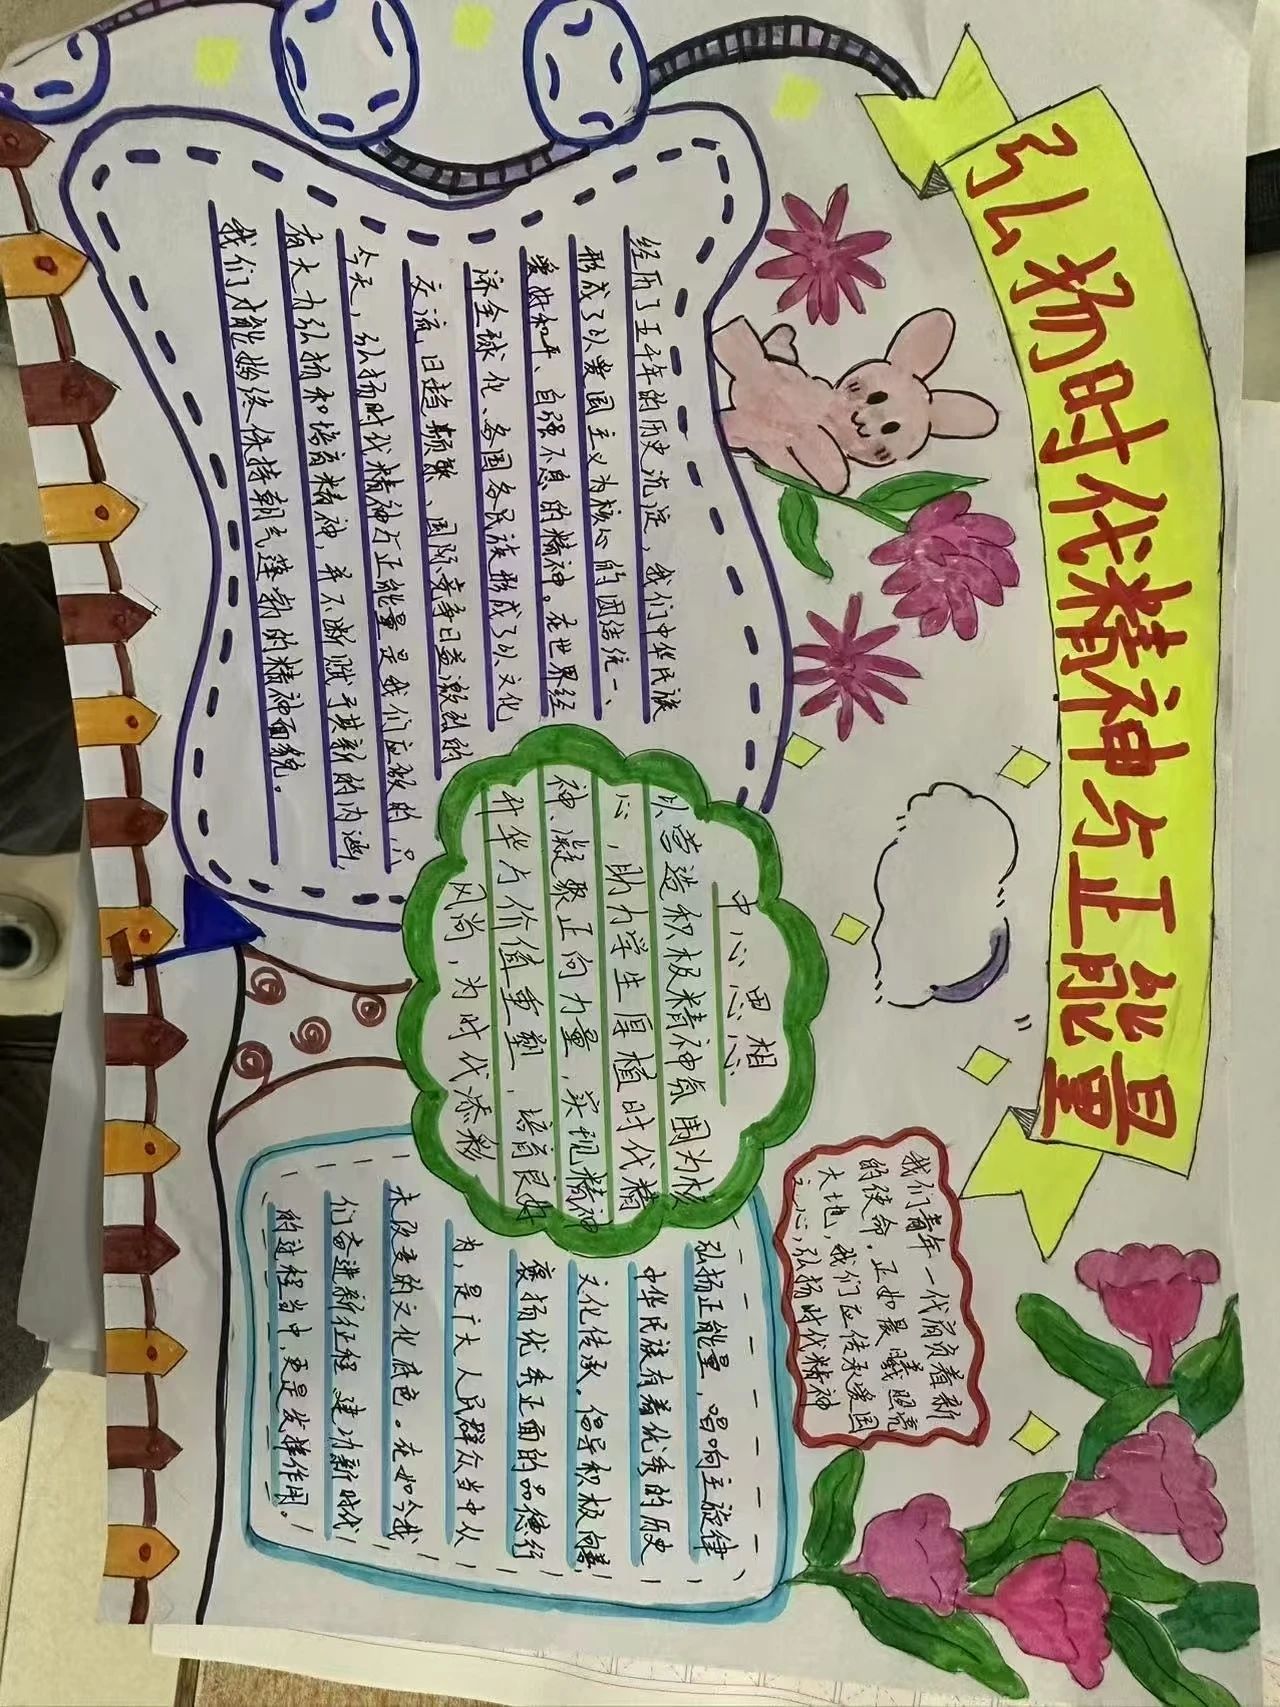 弘扬时代精神与正能量
经历了五千年的历史沉淀，我们中华民族
形成了以爱国主义为核心的团结统一、
爱好和平、自强不息的精神。在世界经
济全球化、各国各民族形成了以文化
交流日趋频繁、国际竞争日益激烈的
今天，弘扬时代精神与正能量是我们应做的，只
有大力弘扬和培育精神，并不断赋予其新的内涵，
我们才能始终保持朝气蓬勃的精神面貌。
中心思想
以营造积极精神氛围为核
心，助力学生厚植时代精
神、凝聚正向力量，实现精神
升华与价值重塑，培育良好
风尚，为时代添彩
我们青年一代肩负着新
的使命，正如晨曦照亮
大地，我们应传承爱国
之心，弘扬时代精神
弘扬正能量，唱响主旋律
中华民族有着优秀的历史
文化传承，倡导积极向善，
褒扬优秀正面的品德行
为，是广大人民群众当中从
未改变的文化底色。在如今我
们奋进新征程 建功新时代
的过程当中，更是发挥作用。